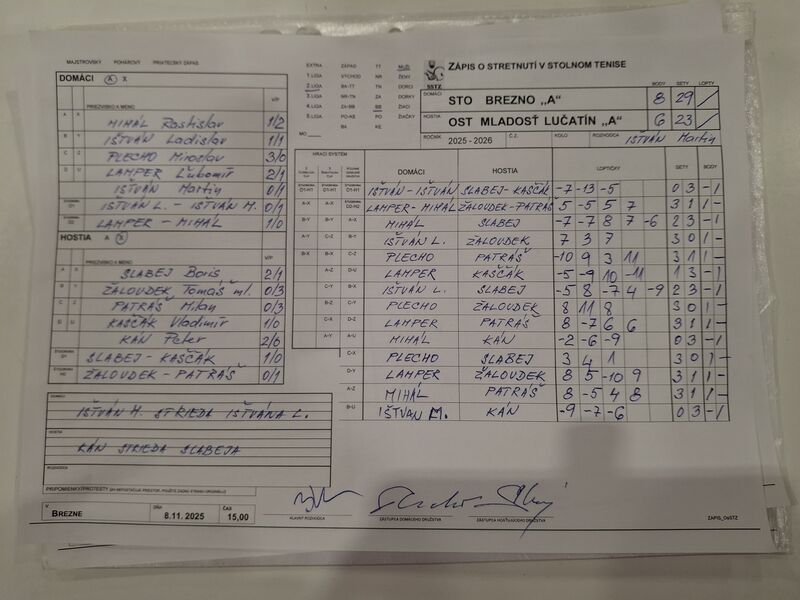 MAJSTROVSKÝ POHÁROVÝ PRIATEĽSKÝ ZÁPAS
DOMÁCI A X
PRIEZVISKO A MENO V/P
A X MIHÁL Rastislav 1/2
B Y IŠTVÁN Ladislav 1/1
C Z PLECHO Miroslav 3/0
D U LAMPER Ľubomír 2/1
IŠTVÁN Martin 0/1
ŠTVORHRA D1 IŠTVÁN L. - IŠTVÁN M. 0/1
ŠTVORHRA D2 LAMPER - MIHÁL 1/0
HOSTIA A X
PRIEZVISKO A MENO V/P
A X SLABEJ Boris 2/1
B Y ŽALOUDEK Tomáš ml. 0/3
C Z PATRÁŠ Milan 0/3
D U KAŠČÁK Vladimír 1/0
KÁN Peter 2/0
ŠTVORHRA SLABEJ - KAŠČÁK 1/0
ŠTVORHRA ŽALOUDEK - PATRÁŠ 0/1
DOMÁCI
IŠTVÁN M. STRIEDA IŠTVÁNA L.
HOSTIA
KÁN STRIEDA SLABEJA
ROZHODCA
PRIPOMIENKY/PROTESTY
V BREZNE DŇA 8.11.2025 ČAS 15,00
EXTRA ZÁPAD TT MUŽI
1.LIGA VÝCHOD NR ŽENY
2.LIGA BA-TT TN DORCI
3.LIGA NR-TN ZA DORKY
4.LIGA ZA-BB BB ŽIACI
5.LIGA PO-KE PO ŽIAČKY
BA KE
MO
SSTZ
ZÁPIS O STRETNUTÍ V STOLNOM TENISE
BODY SETY LOPTY
DOMÁCI STO BREZNO „A" 8 29
HOSTIA OST MLADOSŤ LUČATÍN „A" 6 23
ROČNÍK 2025-2026 Č.Z. KOLO ROZHODCA IŠTVÁN Martin
HRACÍ SYSTÉM
DOMÁCI HOSTIA LOPTIČKY SETY BODY
D1-H1 D1-H1 D1-H1 IŠTVÁN - IŠTVÁN SLABEJ - KAŠČÁK -7 -13 -5 0 3 - 1
A-X A-X D2-H2 LAMPER - MIHÁL ŽALOUDEK - PATRÁŠ 5 -5 5 7 3 1 1 -
B-Y B-Y A-X MIHÁL SLABEJ -7 -7 8 7 -6 2 3 - 1
A-Y C-Z B-Y IŠTVÁN L. ŽALOUDEK 7 3 7 3 0 1 -
B-X B-X C-Z PLECHO PATRÁŠ -10 9 3 11 3 1 1 -
A-Z D-U LAMPER KAŠČÁK -5 -9 10 -11 1 3 - 1
C-Y B-X IŠTVÁN L. SLABEJ -5 8 -7 4 -9 2 3 - 1
B-Z C-Y PLECHO ŽALOUDEK 8 11 8 3 0 1 -
C-X D-Z LAMPER PATRÁŠ 8 -7 6 6 3 1 1 -
A-Y A-U MIHÁL KÁN -2 -6 -9 0 3 - 1
C-X PLECHO SLABEJ 3 4 1 3 0 1 -
D-Y LAMPER ŽALOUDEK 8 5 -10 9 3 1 1 -
A-Z MIHÁL PATRÁŠ 8 -5 4 8 3 1 1 -
B-U IŠTVAN M. KÁN -9 -7 -6 0 3 - 1
HLAVNÝ ROZHODCA ZÁSTUPCA DOMÁCEHO DRUŽSTVA ZÁSTUPCA HOSŤUJÚCEHO DRUŽSTVA ZÁPIS_OeSTZ